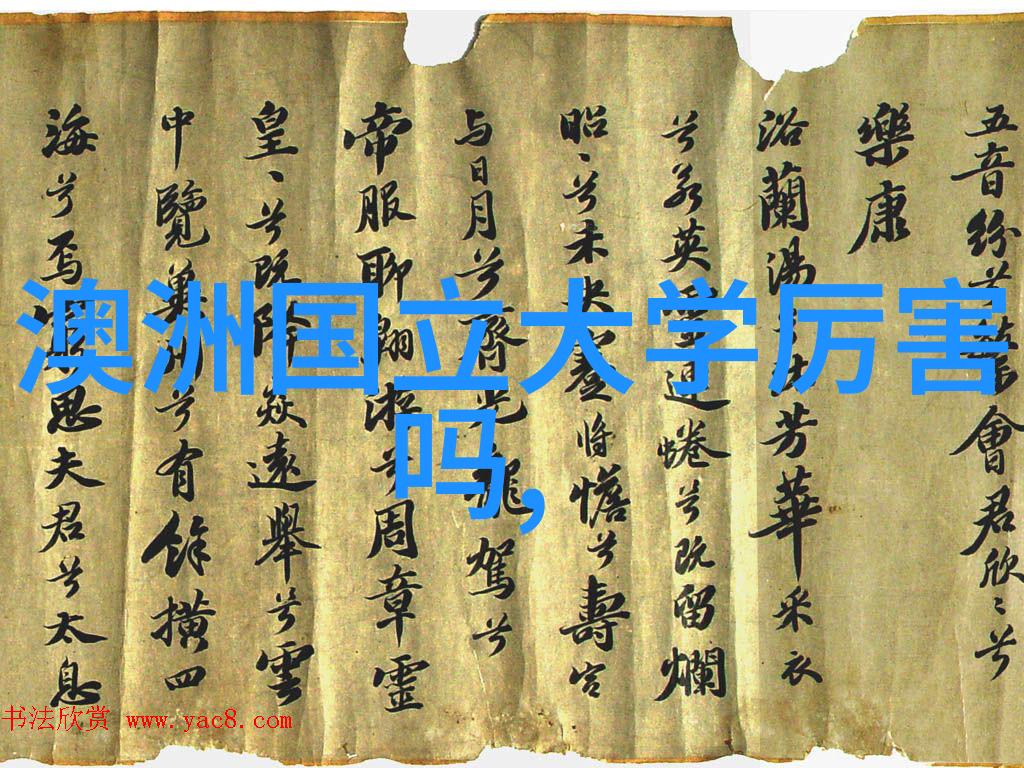 五音紛兮繁會君欣〻兮
樂康
浴蘭湯兮沐芳華采衣
兮若英靈連蜷兮既留爛
昭〻兮未央蹇將憺兮壽宮
与日月兮齊光龍駕兮
帝服聊翱遊兮周章靈
皇〻兮既降猋遠舉兮雲
中覽冀洲兮有餘橫四
海兮焉窮思夫君兮太息
澳洲国立大学厉害
吗,
书法欣赏 www.yac8.com